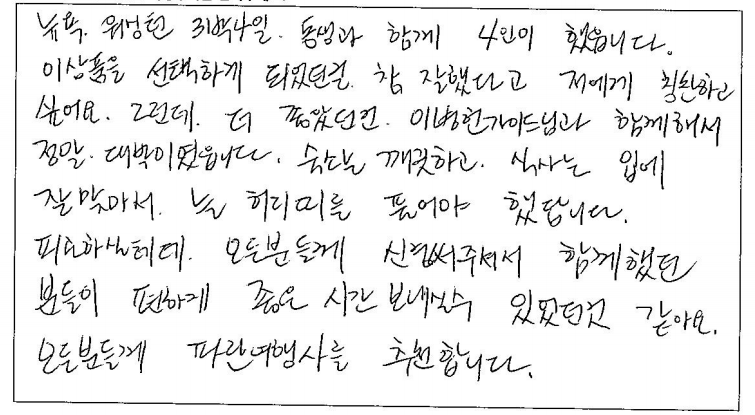 뉴욕. 워싱턴 3박4일. 동생과 함께 4인이 했습니다.
이상품을 선택하게 되었던걸. 참 잘했다고 저에게 칭찬하고
싶어요. 그런데. 더 좋았던건. 이병헌가이드님과 함께해서
정말. 대박이였습니다. 숙소는 깨끗하고. 식사는 입에
잘맞아서. 늘 허리띠를 풀어야 했답니다.
피곤하실텐데. 모든분들께 신경써주셔서 함께했던
분들이 편하게 좋은 시간 보내실수 있었던것 같아요.
모든분들께 파란여행사를 추천합니다.